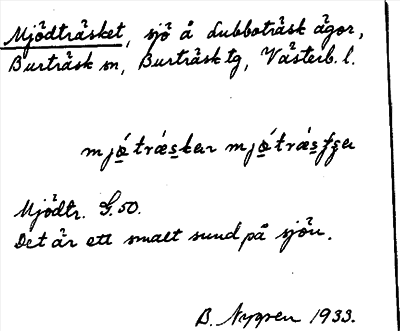 Mjödträsket, sjö å Lubboträsk ägor,
Burträsk sn, Burträsk tg, Västerb. l.
Mjödtr. G.50.
Det är ett smalt sund på sjön.
B. Nygren 1933.